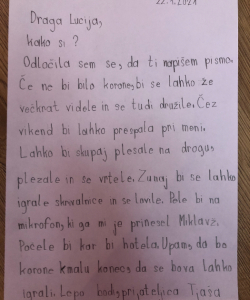 22.4.2021
Draga Lucija,
kako si?
Odločila sem se, da ti napišem pismo.
Če ne bi bilo korone, bi se lahko že
večkrat videle in se tudi družile. Čez
vikend bi lahko prespala pri meni.
Lahko bi skupaj plesale na drogu,
plezale in se vrtele. Zunaj bi se lahko
igrale skrivalnice in se lovile. Pele bi na
mikrofon, ki ga mi je prinesel Miklavž.
Počele bi kar bi hotela. Upam, da bo
korone kmalu konec, da se bova lahko
igrali. Lepo bodi, prijateljica Tjaša